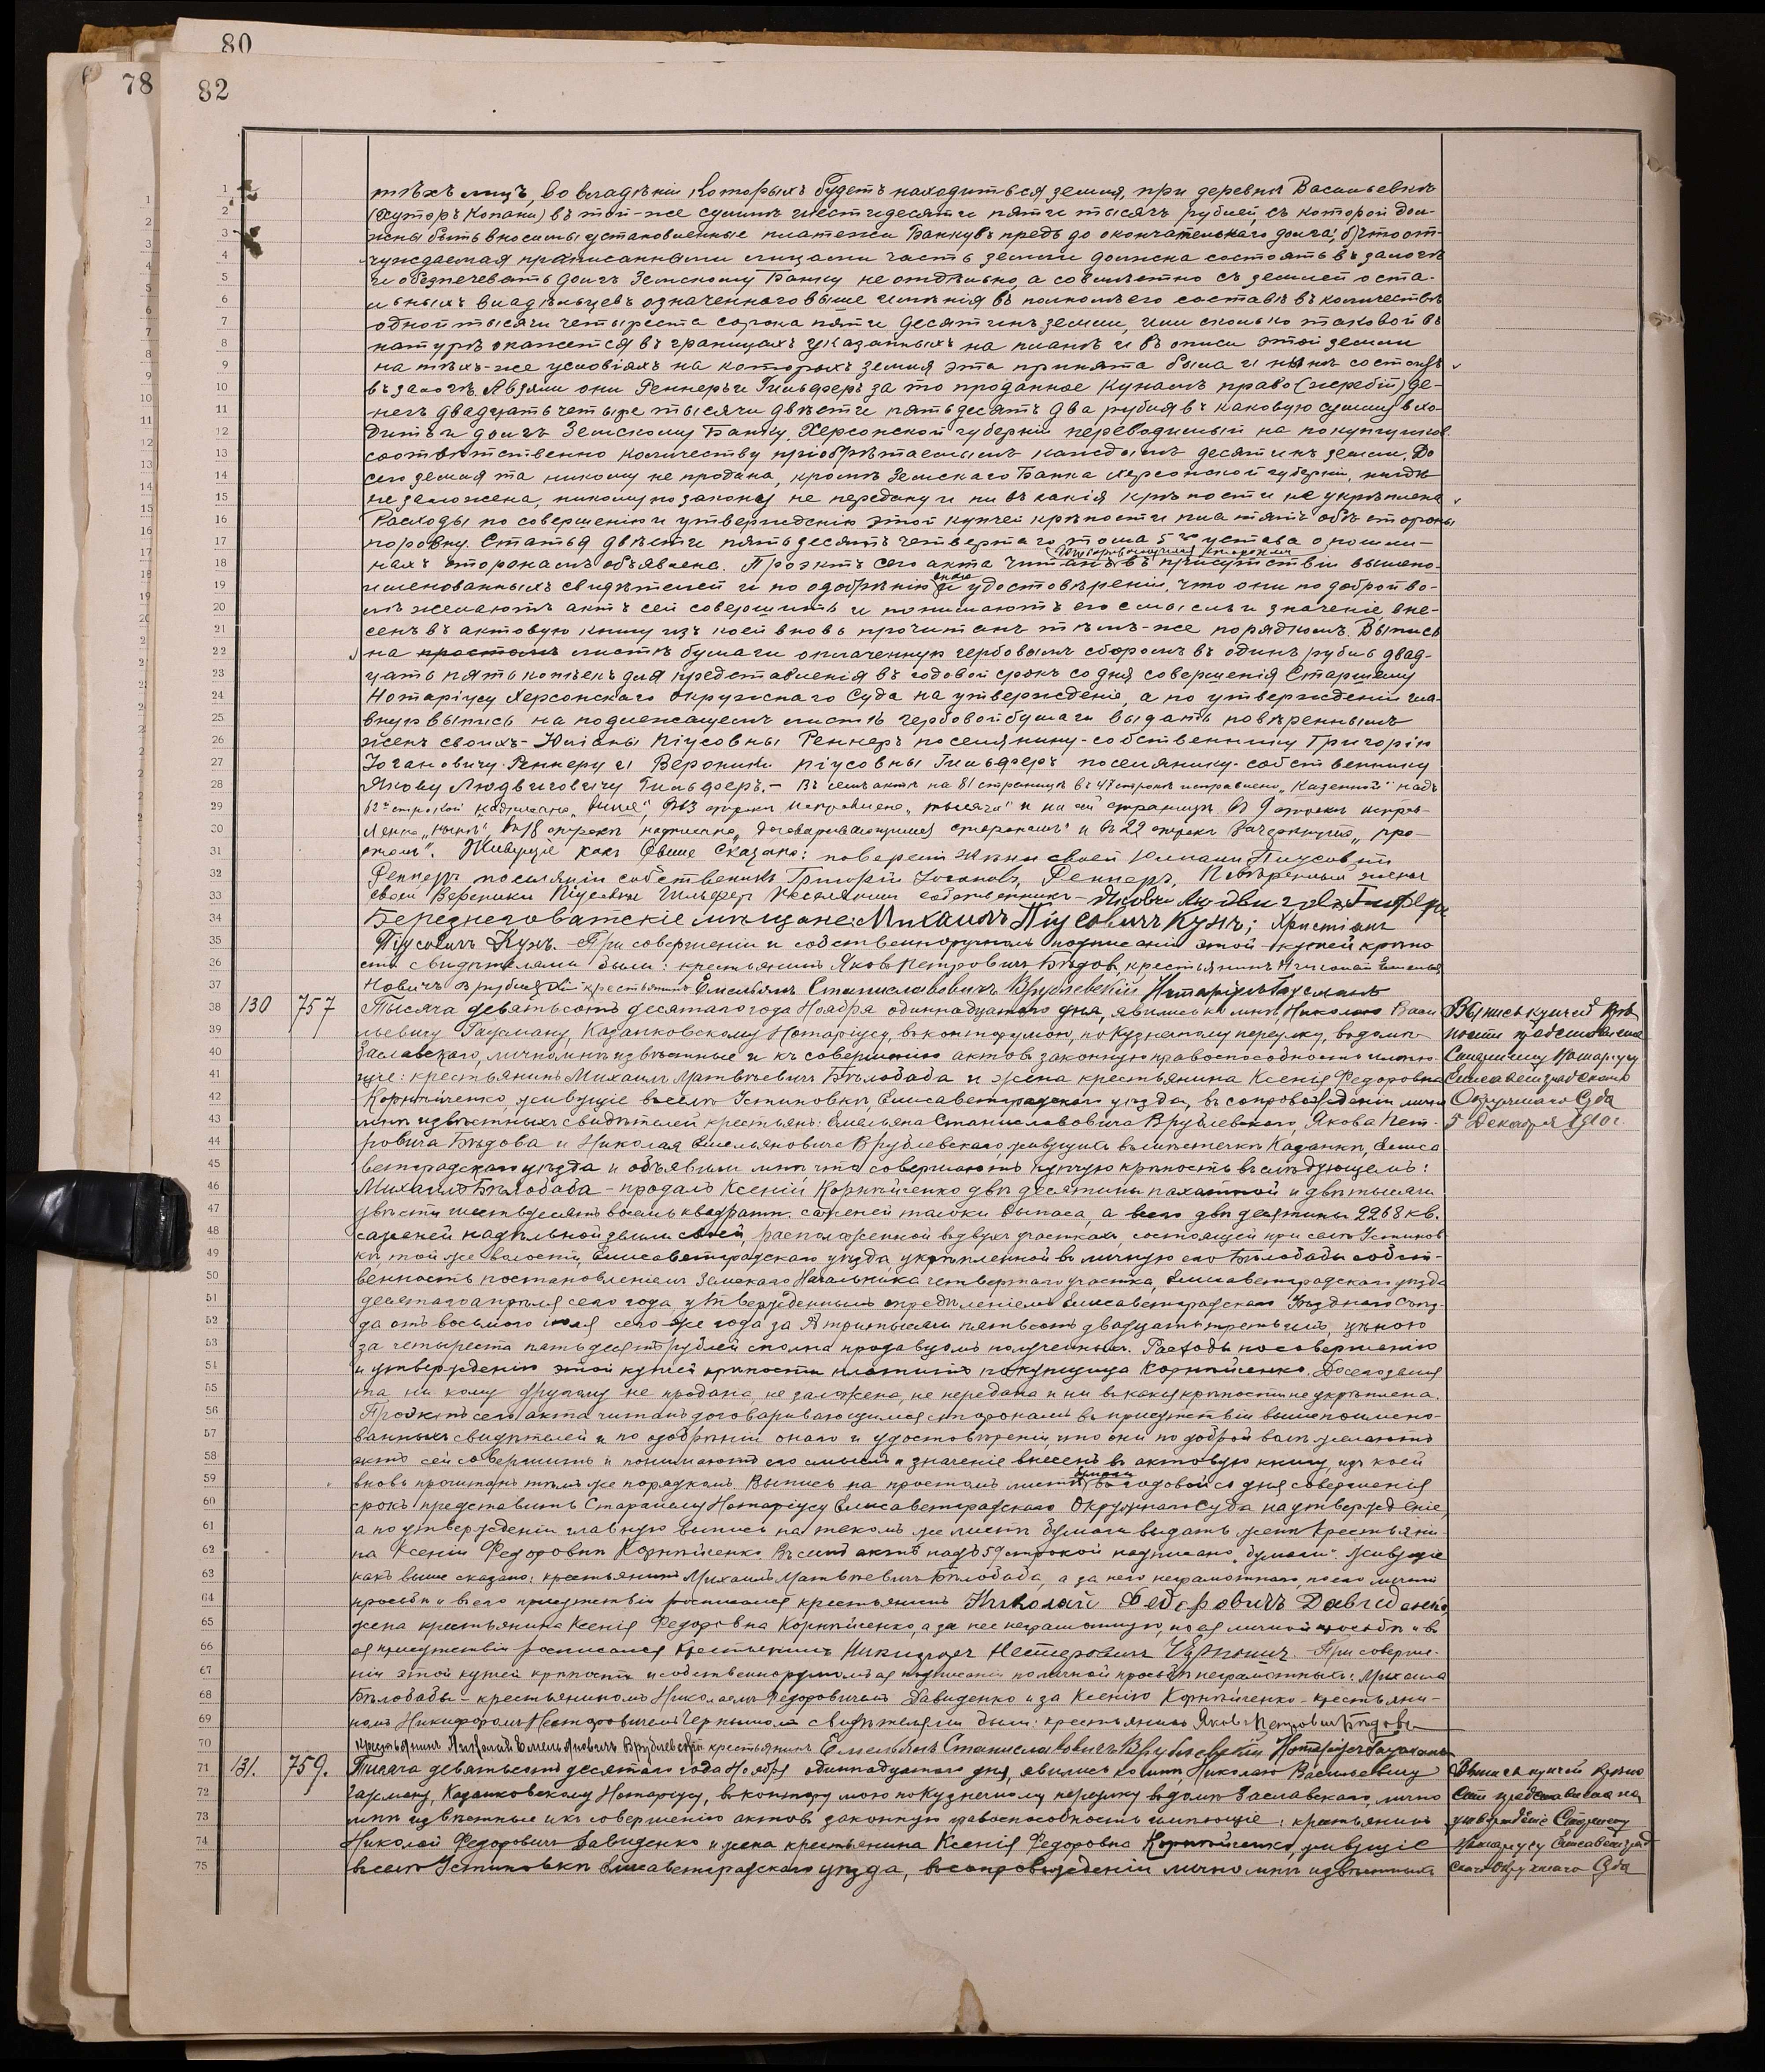 80
78
82
тѣхъ лицъ, во владѣніи которыхъ будетъ находиться земля, при деревнѣ Васильевкѣ
(хуторъ Копани) въ той-же суммѣ шестидесяти пяти тысячъ рублей, съ которой дол-
жны быть вносимы установленные платежи Банку впредь до окончательнаго долга; б) что от-
чуждаемая прописанными лицами часть земли должна состоять въ залогѣ
и обезпечивать долгъ Земскому Банку не отдѣльно, а совмѣстно съ землей оста-
льныхъ владѣльцевъ означеннаго выше имѣнія въ полномъ его составѣ въ количествѣ
одной тысячи четыреста сорока пяти десятинъ земли, или сколько таковой въ
натурѣ окажется въ границахъ указанныхъ на планѣ и въ описи этой земли
на тѣхъ-же условіяхъ на которыхъ земля эта принята была и нынѣ состоитъ
въ залогѣ. А взяли они Реннеръ и Гильдферъ за то проданное Кунамъ право (жеребій) де-
негъ двадцать четыре тысячи двѣсти пятьдесятъ два рубля въ каковую сумму вхо-
дитъ и долгъ Земскому Банку Херсонской губерніи переводимый на покупщиковъ
соотвѣтственно количеству пріобрѣтаемымъ каждымъ десятинъ земли. До
сего земля та никому не продана, кромѣ Земскаго Банка Херсонской губерніи, нигдѣ
не заложена, никому по закону не передана и ни въ какія крѣпости не укрѣплена
Расходы по совершенію и утвержденію этой купчей крѣпости платятъ обѣ стороны
поровну. Статья двѣсти пятьдесятъ четвертаго тома 5го устава о пошли-
договаривающимся сторонамъ
нахъ сторонамъ объявлена. Проэктъ сего акта читанъ въ присутствіи вышепо-
именованныхъ свидѣтелей и по одобреніи онаго и удостовѣреніи, что они по доброй во-
лѣ желаютъ актъ сей совершить и понимаютъ его смыслъ и значеніе, вне-
сенъ въ актовую книгу изъ коей вновь прочитанъ тѣмъ-же порядкомъ. Выпись
на простомъ листѣ бумаги оплаченную гербовымъ сборомъ въ одинъ рубль двад-
цать пять копѣекъ для представленія въ годовой срокъ со дня совершенія Старшему
Нотаріусу Херсонскаго Окружнаго Суда на утвержденіе, а по утвержденіи гла-
вную выпись на подлежащемъ листѣ гербовой бумаги выдать повѣреннымъ
женъ своихъ - Юліаны Піусовны Реннеръ поселянину-собственнику Григорію
Іогановичу Реннеру и Вероники Піусовны Гильдферъ поселянику-собственнику
Якову Людвиговичу Гильдферъ. - Въ семъ актѣ на 81 страницѣ въ 47 строкѣ исправлено „Казенной“ надъ
строкой надписано исправлено „тысяча“ и на сей страницѣ въ 9 строкѣ исправ-
лено „нынѣ“, въ 18 строкѣ надписано „договаривающимся сторонамъ“ и въ 22 строкѣ зачеркнуто „про-
стомъ“. Живущіе какъ выше сказано: поверений жины своей Юлиани Пиусовни
Реннеръ посилянін собственикъ Григорій Іогановъ Реннеръ, Повѣренный жены
своей Вероники Піусовны Гильдфер поселянин собственникъ - Яковъ Людвиговъ
Березнеговатскіе мѣщане: Михаилъ Піусовичъ Кунъ; Христіан
Піусовичъ Кунъ. - При совершеніи и собственноручномъ подписаніи этой купчей крѣпо
сти свидѣтелями были: крестьянинъ Яковъ Петровичъ Бѣдов, крестьянинъ Николай Емелья
новичъ Врублевскій крестьянинъ Емельянъ Станиславовичъ Врублевскій Нотаріусъ Гаусманъ
130 757 Тысяча девятьсотъ десятаго года Ноября одиннадцатаго дня, явились ко мнѣ Николаю Васи
льевичу Гаусману, Казанковскому Нотаріусу, въ контору мою, по Кузнечному переулку, въ домѣ
Заславскаго, лично мнѣ извѣстные и къ совершенію актовъ законную правоспособность имѣю-
щіе: крестьянинъ Михаилъ Матвѣевичъ Бѣлобаба и жена крестьянина Ксенія Федоровна
Корнѣйченко, живущіе въ селѣ Устиновкѣ, Елисаветградскаго уѣзда, въ сопровожденіи лично
мнѣ извѣстныхъ свидѣтелей крестьянъ: Емельяна Станиславовича Врублевскаго, Якова Пет-
ровича Бѣдова и Николая Емельяновича Врублевскаго, живущихъ въ мѣстечкѣ Казанкѣ, Елиса
ветградскаго уѣзда и объявили мнѣ что совершаютъ купчую крѣпость въ слѣдующемъ:
Михаилъ Бѣлобаба - продалъ Ксеніи Корнѣйченко двѣ десятины пахатной и двѣ тысячи
двѣсти шестьдесятъ восемь квадратн. саженей толоки выпаса, а всего двѣ десятины 2268 кв.
саженей надѣльной земли своей, расположенной въ двухъ участкахъ, состоящей при селѣ Устинов
кѣ, той же волости, Елисаветградскаго уѣзда, укрѣпленной въ личную его Бѣлобабы собст-
венность постановленіемъ Земскаго Начальника четвертаго участка, Елисаветградскаго уѣзда
десятаго апрѣля сего года, утвержденнымъ опредѣленіемъ Елисаветградскаго Уѣзднаго Съѣз-
да отъ восьмого іюля сего же года за № три тысячи пятьсотъ двадцать третьимъ, цѣною
за четыреста пятьдесятъ рублей сполна продавцомъ полученныхъ. Расходы по совершенію
и утвержденію этой купчей крѣпости платитъ покупщица Корнѣйченко. До сего земля
та ни кому другому не продана, не заложена, не передана и ни въ какія крѣпости не укрѣплена.
Проэктъ сего акта читанъ договаривающимся сторонамъ въ присутствіи вышепоимено-
ванныхъ свидѣтелей и по одобреніи онаго и удостовѣреніи, что они по доброй волѣ желаютъ
актъ сей совершить и понимаютъ его смыслъ и значеніе внесенъ въ актовую книгу, изъ коей
бумаги
вновь прочитанъ тѣмъ же порядкомъ. Выпись на простомъ листѣ въ годовой со дня совершенія
срокъ представить Старшему Нотаріусу Елисаветградскаго Окружнаго Суда на утвержденіе,
а по утвержденіи главную выпись на такомъ же листѣ бумаги выдать женѣ крестьяни-
на Ксеніи Федоровнѣ Корнѣйченко. Въ семъ актѣ надъ 59 строкой надписано „бумаги“. Живущіе
какъ выше сказано: крестьянинъ Михаилъ Матвѣевичъ Бѣлобаба, а за него неграмотнаго, по его личной
просьбѣ и въ его присутствіи росписался крестьянинъ Николай Федоровичъ Давиденко,
жена крестьянина Ксенія Федоровна Корнѣйченко, а за нее неграмотную, по ея личной просьбѣ и въ
ея присутствіи росписался крестьянинъ Никифоръ Нестеровичъ При соверше-
ніи этой купчей крѣпости и собственноручномъ ея подписаніи по личной просьбѣ неграмотныхъ: Михаила
Бѣлобабы - крестьяниномъ Николаемъ Федоровичемъ Давиденко и за Ксенію Корнѣйченко - крестьяни-
номъ Никифоромъ Нестеровичемъ свидѣтелями были: крестьянинъ Яковъ Петрович Бѣдовъ
крестьянинъ Николай Емельяновичъ Врублевскій крестьянинъ Емельянъ Станиславовичъ Врублевскій Нотаріусъ Гаусманъ
131. 759. Тысяча девятьсотъ десятаго года Ноября одиннадцатаго дня, явились ко мнѣ, Николаю Васильевичу
Гаусману, Казанковскому Нотаріусу, въ контору мою по Кузнечному переулку въ домѣ Заславскаго, лично
мнѣ извѣстные и къ совершенію актовъ законную правоспособность имѣющіе: крестьянинъ
Николай Федоровичъ Давиденко и жена крестьянина Ксенія Федоровна Корнѣйченко, живущіе
въ селѣ Устиновкѣ Елисаветградскаго уѣзда, въ сопровожденіи лично мнѣ извѣстныхъ
Выпись купчей крѣ
пости представлена
Старшему Нотаріусу
Елисаветградскаго
Окружнаго Суда
5 Декабря 1910 г.
Выпись купчей крѣпо
сти представлена на
утвержденіе Старшему
Нотаріусу Елисаветград
скаго Окружнаго Суда